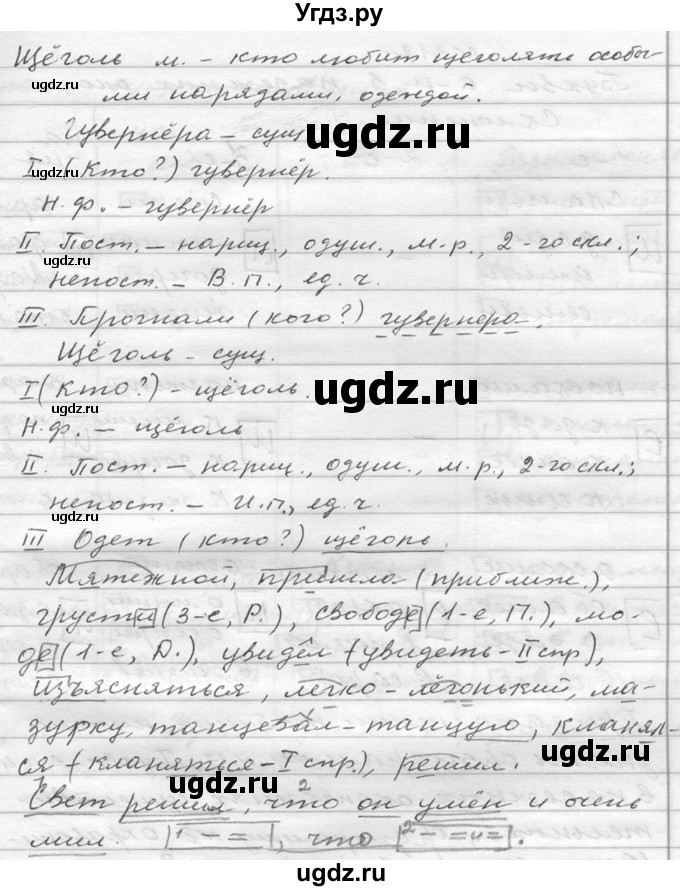 Угдз.ру
Щёголь м. – кто любит щеголять особы-
ми нарядами, одеждой.
Гувернёра – сущ
I (Кто?) гувернёр.
Н.ф. – гувернёр
II. Пост. – нариц., одуш., м.р., 2-го скл.;
непост. – В.П., ед.ч.
III. Прогнали (кого?) гувернера.
Щёголь – сущ.
I (Кто?) – щёголь.
Н.ф. – щёголь
II. Пост. – нариц., одуш., м.р., 2-го скл.;
непост. – И.П., ед.ч.
III Одет (кто?) щёголь.
Мятежной, пришла (приближ.),
грусти (3-е, Р.), свободе (1-е, П.), мо-
де (1-е, Д.), увидел (увидеть – II спр),
изъясняться, легко – лёгонький, ма-
зурку, танцевал – танцую, кланял-
ся (кланяться – I спр.), решил.
Свет решил, что 2 он умён и очень
мил. | 1 – = |, что | 2 – = и = |.
ugdz.ru
ugdz.ru
ugdz.ru
ugdz.ru
ugdz.ru
ugdz.ru
ugdz.ru
ugdz.ru
ugdz.ru